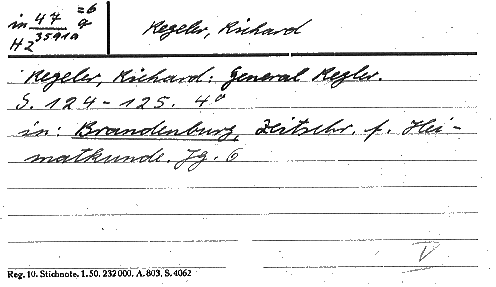 in 47 =6
3591a q
HZ
Regeler, Richard
Regeler, Richard: General Regler.
S. 124-125. 4°
in: Brandenburg, Zeitschr. f. Hei-
matkunde. Jg. 6
V
Reg. 10. Stichnote. 1. 50. 232000. A. 803. S. 4062